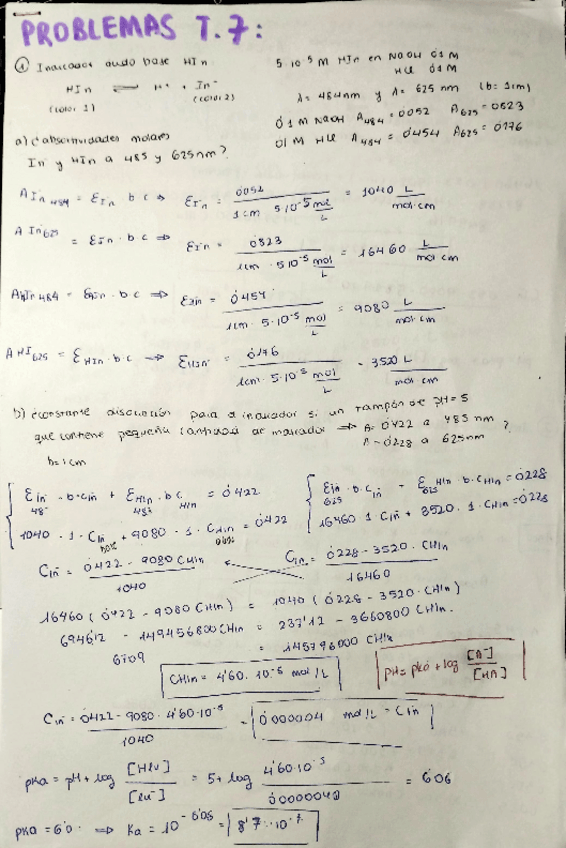 PROBLEMAS T.7:
① Indicador ácido base HIn
HIn ⇌ H⁺ + In⁻
(color 1) (color 2)
5·10⁻⁵ M HIn en NaOH 0'1 M
HCl 0'1 M
λ = 484nm y λ = 625 nm (b=1cm)
0'1 M NaOH A₄₈₄ = 0'052 A₆₂₅ = 0'823
0'1 M HCl A₄₈₄ = 0'454 A₆₂₅ = 0'176
a) ¿absortividades molares
In⁻ y HIn a 485 y 625nm?
A In⁻ 484 = ε In⁻ · b c ⇒ ε In⁻ = 0'052 / 1cm 5·10⁻⁵ mol/L = 1040 L / mol·cm
A In⁻ 625 = ε In⁻ · b c ⇒ ε In⁻ = 0'823 / 1cm · 5·10⁻⁵ mol/L = 16460 L / mol cm
A HIn 484 = ε HIn · b c ⇒ ε HIn = 0'454 / 1cm · 5·10⁻⁵ mol/L = 9080 L / mol·cm
A HI 625 = ε HIn · b·c ⇒ ε HIn = 0'176 / 1cm · 5·10⁻⁵ mol/L = 3520 L / mol cm
b) ¿constante disociación para el indicador si un tampón de pH=5
que contiene pequeña cantidad de indicador ⇒ A=0'422 a 485 nm ?
A=0'228 a 625nm
b=1cm
ε In⁻ 485 · b·c In⁻ + ε HIn 485 · b c HIn = 0'422
1040 · 1 · C In⁻ + 9080 · 1 · C HIn = 0'422
ε In⁻ 625 · b·c In⁻ + ε HIn 625 · b·c HIn = 0'228
16460 · 1 · C In⁻ + 3520 · 1 · C HIn = 0'228
C In⁻ = 0'422 - 9080 CHIn / 1040
C In⁻ = 0'228 - 3520 · CHIn / 16460
16460 (0'422 - 9080 CHIn) = 1040 (0'228 - 3520 · CHIn)
6946'12 - 149456800 CHIn = 237'12 - 3660800 CHIn.
6709 = 145796000 CHIn
CHIn = 4'60·10⁻⁵ mol/L
pH = pKa + log [A⁻] / [HA]
C In⁻ = 0'422 - 9080 · 4'60·10⁻⁵ / 1040 = 0'000004 mol/L = C In⁻
pKa = pH + log [HIn] / [In⁻] = 5 + log 4'60·10⁻⁵ / 0'0000040 = 6'06
pKa = 6'0 ⇒ Ka = 10⁻⁶'⁰⁶ = 8'7·10⁻⁷